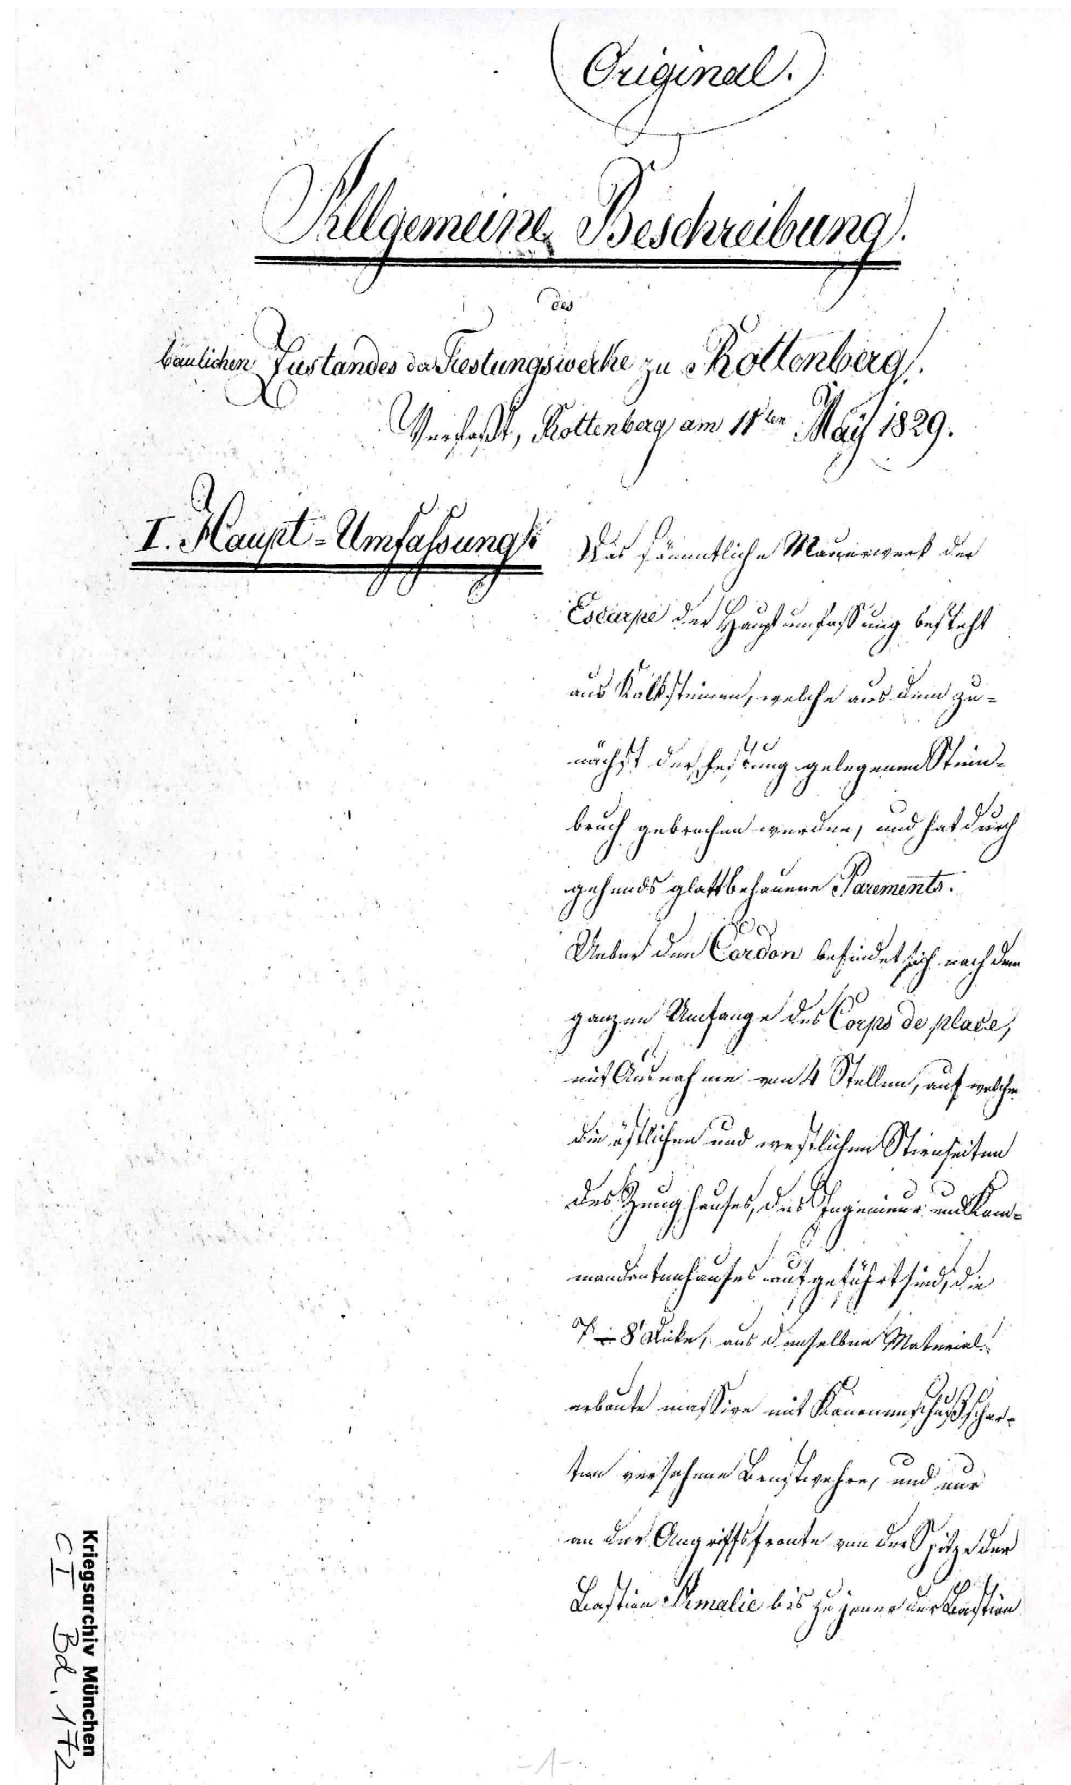 Original.
Allgemeine Beschreibung.
des
baulichen Zustandes der Festungswerke zu Rottenberg.
Verfaßt, Rottenberg am 11ten May 1829.
I. Haupt-Umfassung:
Das sämmtliche Mauerwerk der
Escarpe der Hauptumfassung besteht
aus Kalksteinen, welche aus dem zu-
nächst der Festung gelegenen Stein-
bruch gebrochen wurden, und hat durch
gehends glattbehauene Parements.
Ueber dem Cordon befindet sich nach dem
ganzen Umfange des Corps de place,
mit Ausnahme von 4 Stellen, auf welchen
die östlichen und westlichen Stirnseiten
des Zeughauses, des Ingenieur und Kom-
mandantenhauses aufgeführt sind, die
7 ÷ 8' dicke, aus demselben Material
erbaute massive mit Kanonenschußschar-
ten versehene Brustwehre, und nur
an der Angriffsfronte von der Spitze der
Bastion Amalie bis zu jener der Bastion
Kriegsarchiv München
C I Bd. 172
-1-